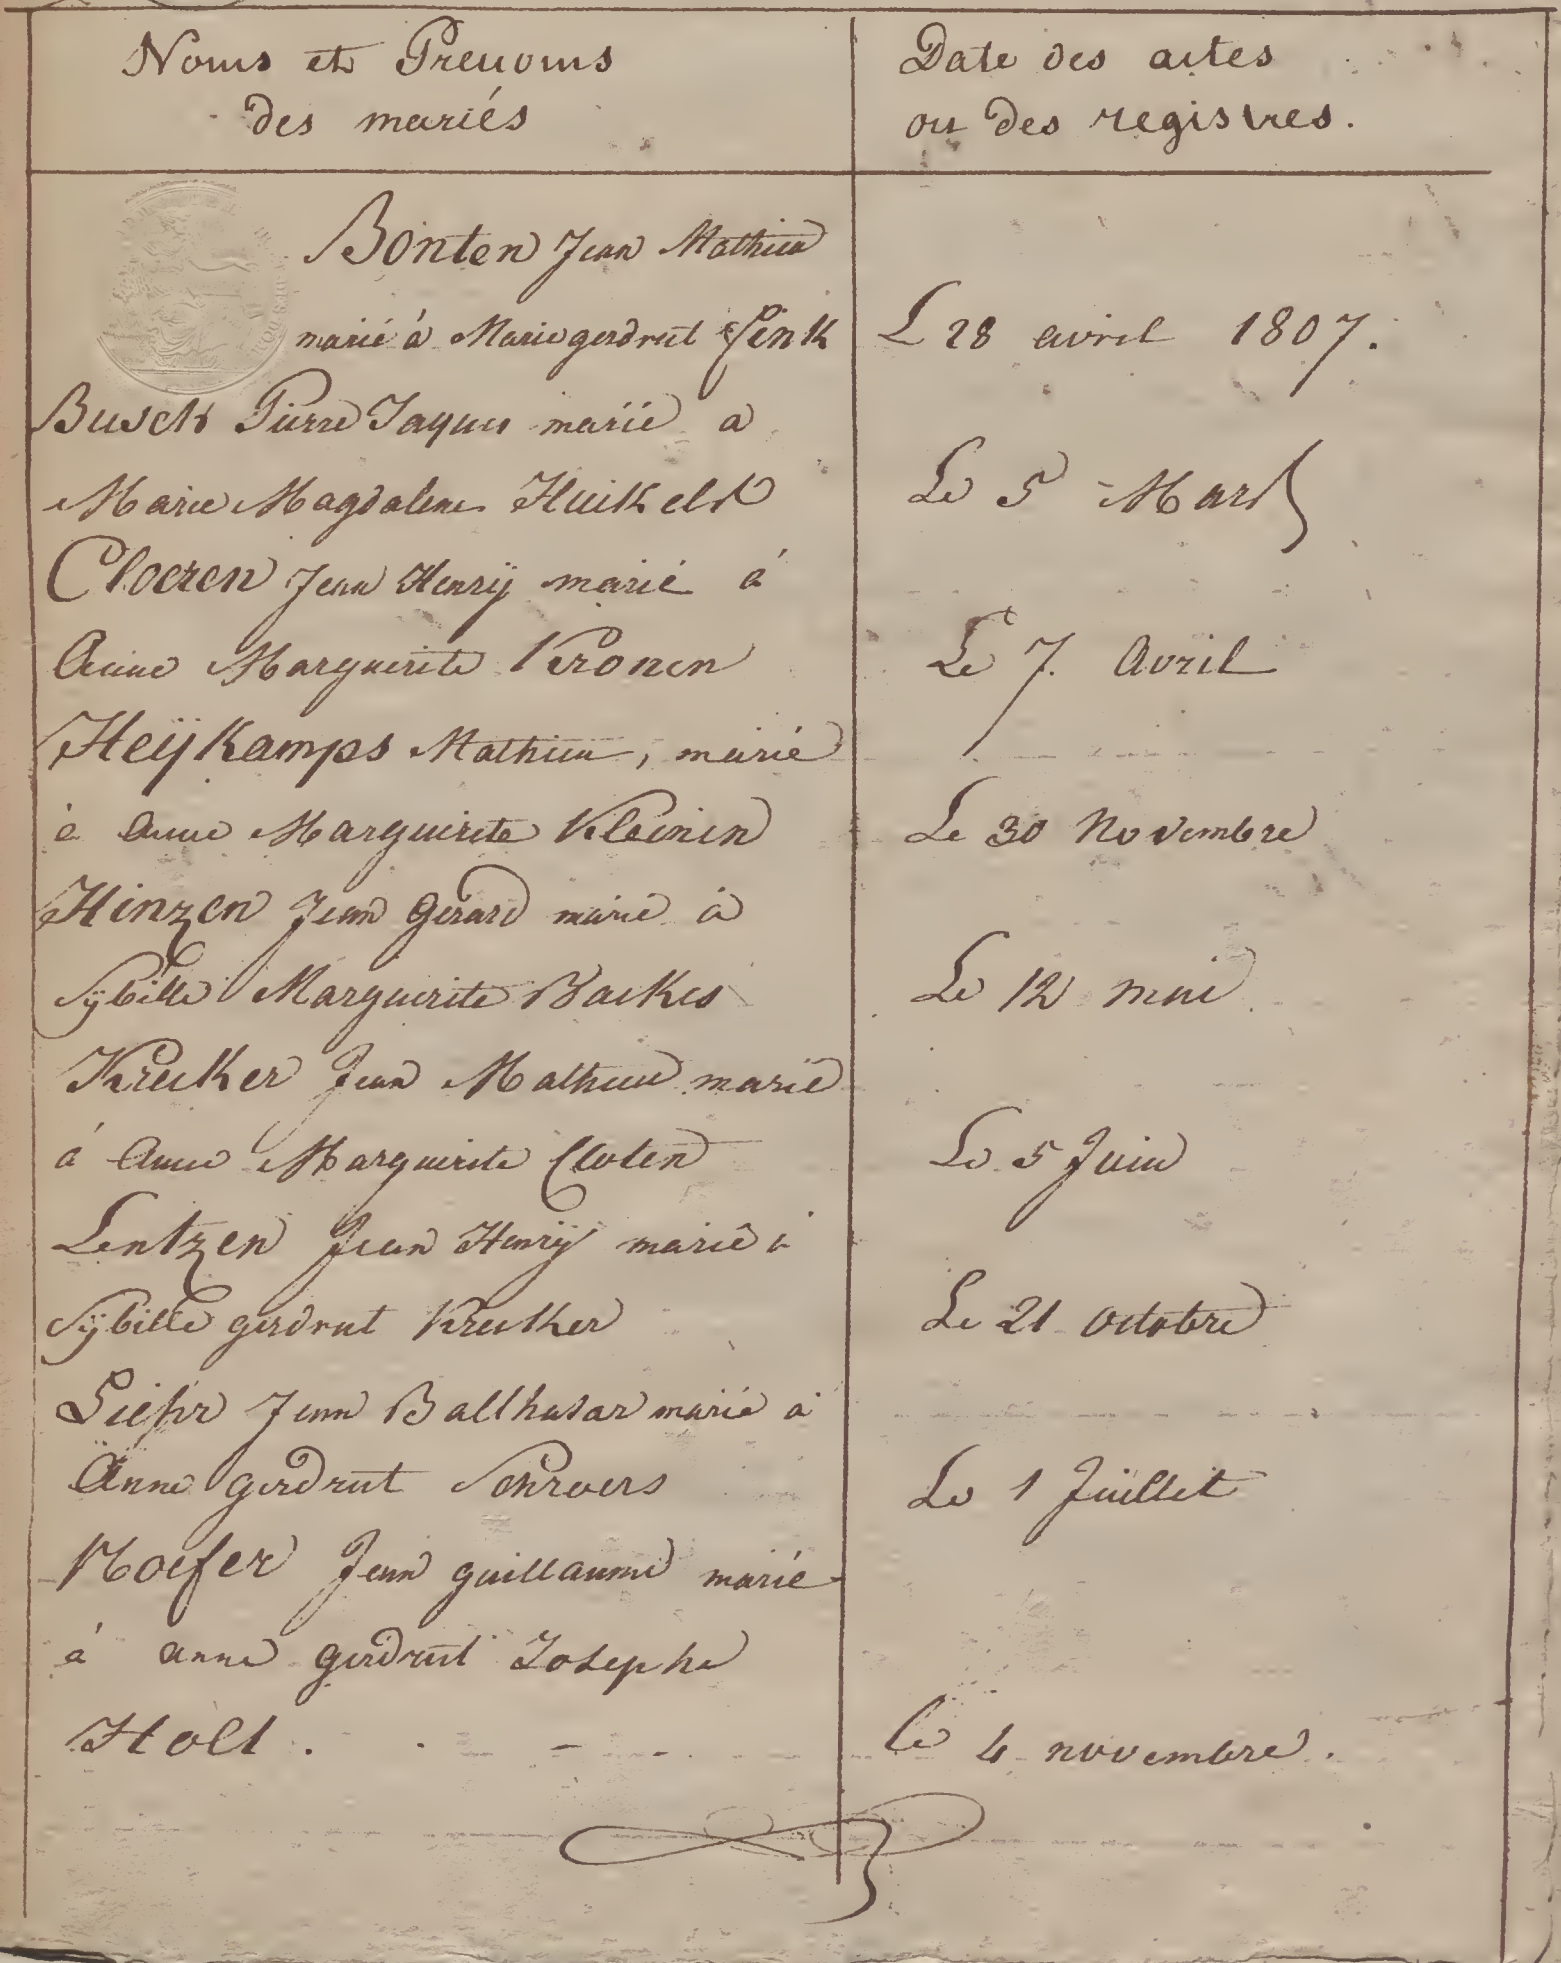 Noms et Prenoms
des mariés
Date des actes
ou des registres.
Bonten Jean Mathieu
marié à Marie gerdrut Fink
L 28 avril 1807.
Busch Pierre Jaques marié a
Marie Magdalene
Le 5 Mars
Cloeren Jean Henrÿ marié á
Anne Marguerite Kronen
Le 7. Avril
Heÿkamps Mathieu, marié
à Anne Marguerite Kleinen
Le 30 Novembre
Hinzen Jean Gerard marié à
Sÿbille Marguerite Backes
Le 12 mai
Kreuker Jean Mathieu marié
á Anne Marguerite Cloten
Le 5 Juin
Lentzen Jean Henrÿ marié à
Sÿbille gerdrut Kreuker
Le 21 octobre
Jean Balthasar marié à
Anne gerdrut Schroers
Le 1 Juillet
Noefer Jean guillaume marié
á anne gerdrut Josephe
Holt .
le 4 novembre.